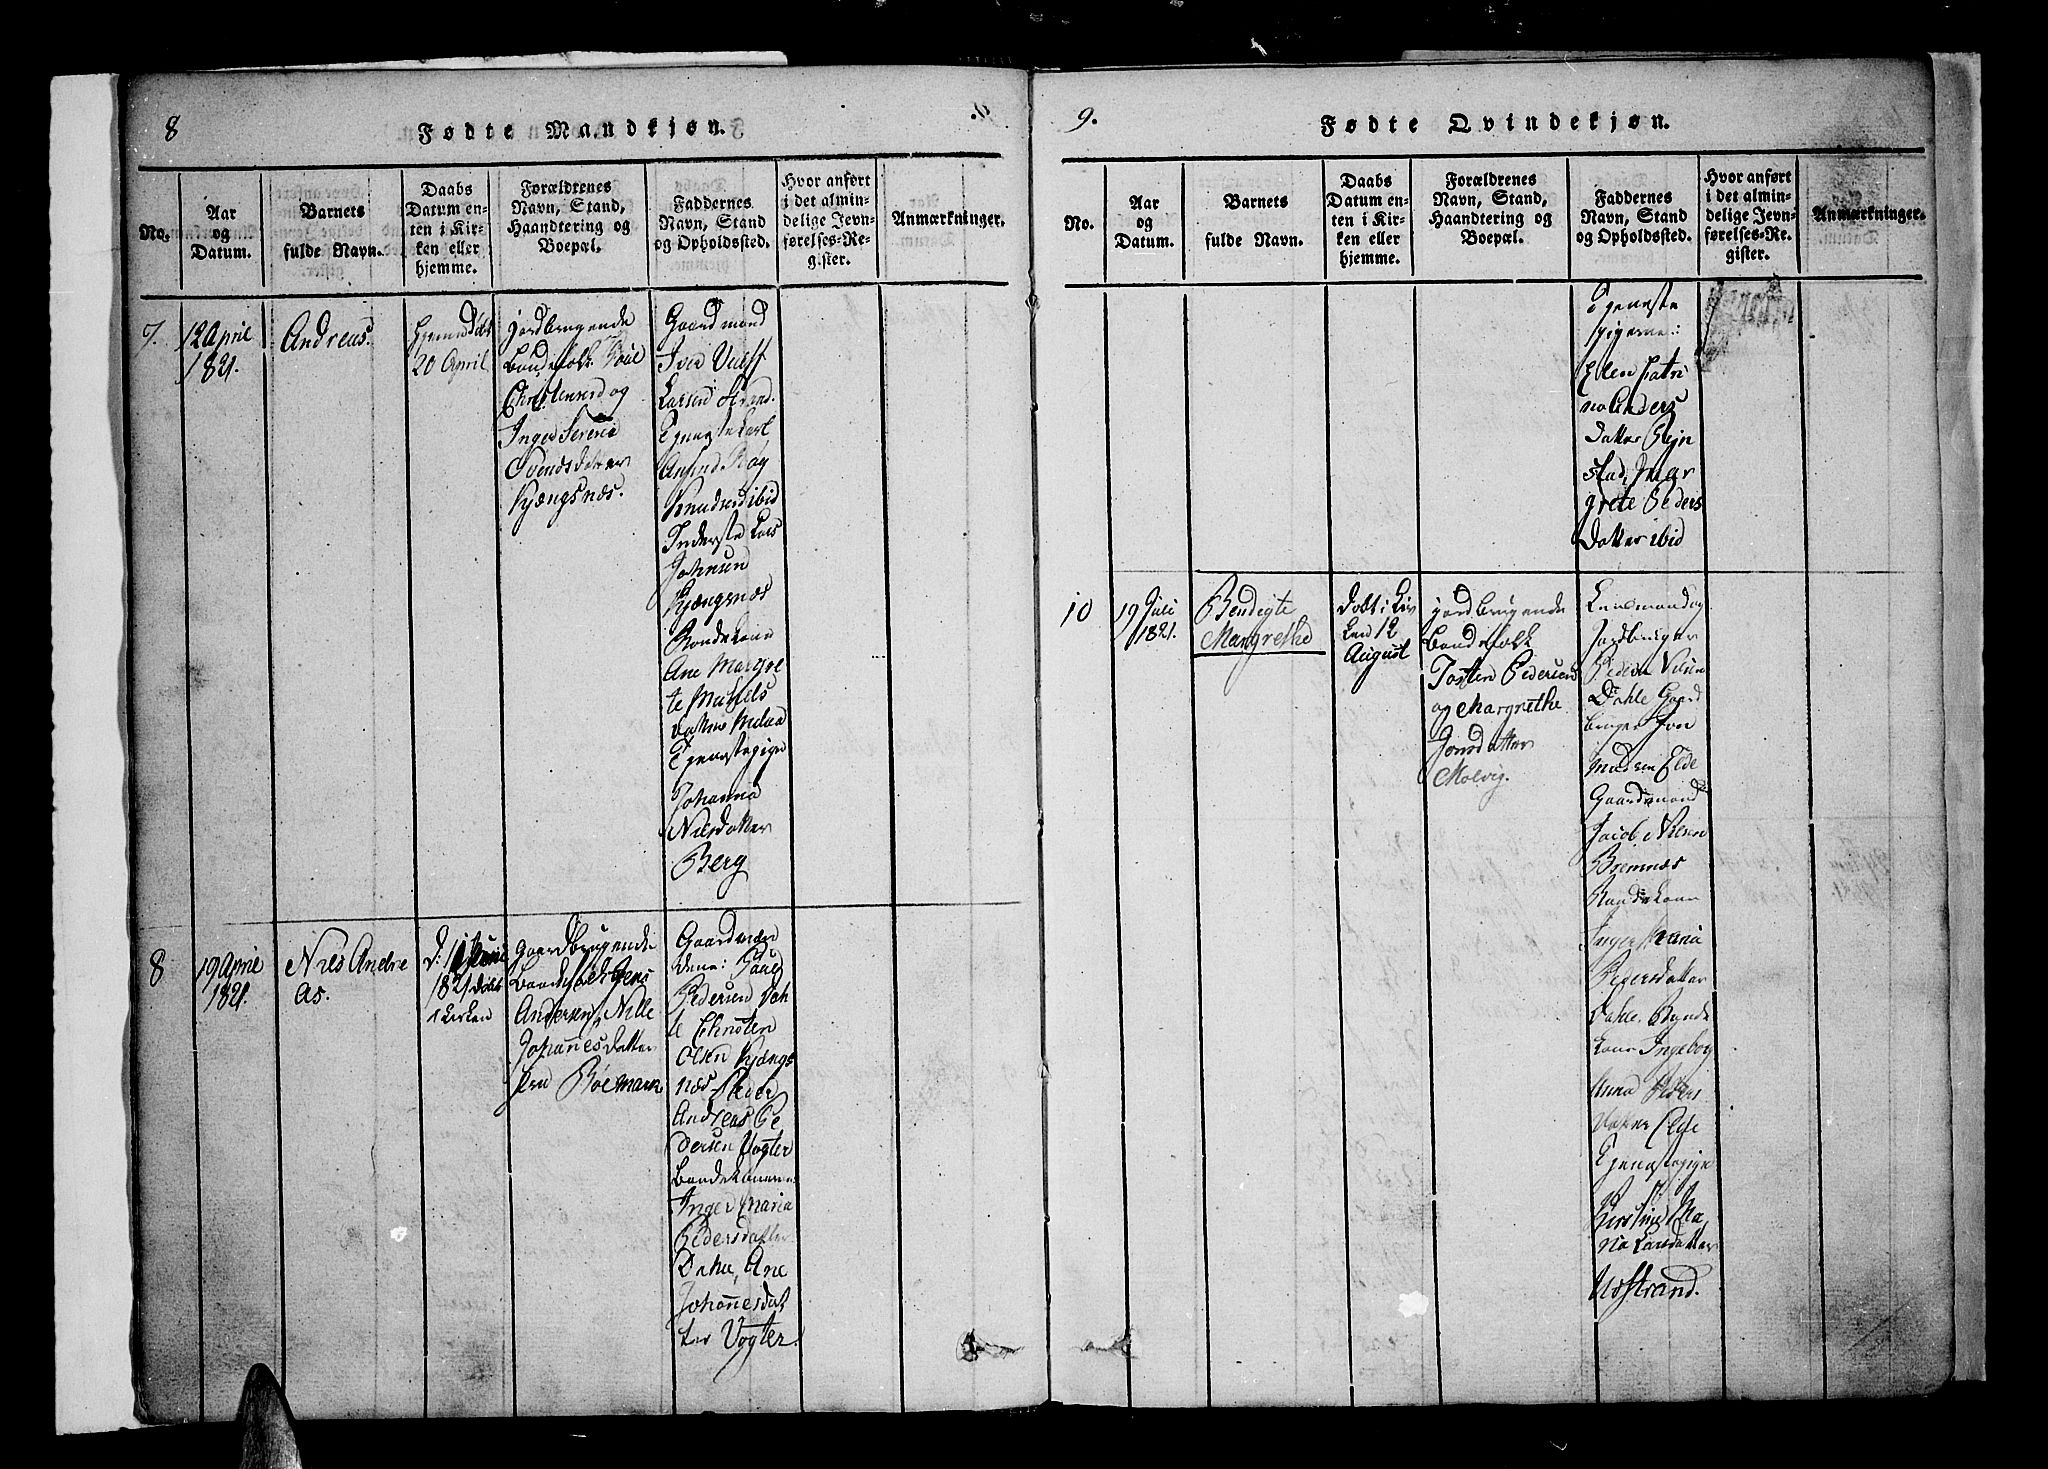 8
Fødte Mandkjøn.
No.
Aar
og
Datum.
Barnets
fulde Navn.
Daabs
Datum en-
ten i Kir-
ken eller
hjemme.
Forældrenes
Navn, Stand,
Haandtering og
Boepæl.
Faddernes
Navn, Stand
og Opholdssted.
Hvor anført
i det almin-
delige Jevn-
førelses-Re-
gister.
Anmærkninger.
7.
12 April
1821.
Andreas.
Hjemmedøbt
20 April
jordbrugende
Bondefolk Poul
Christensen og
Inger Serena
Svendsdatter
Kjængsnæs.
Gaardmand
Iver
Larsen Strand.
Tjenestekarl
Knudsen ibid
Inderste Lars
Johnsen
Kjængsnæs
Bondekone
Ane Margre
te Michels
datter
Tjenestepige
Johanna
Nilsdatter
Berg
8
19 April
1821.
Nils Andre
as.
d: 11 Juni
1821 døbt
i Kirken
Gaardbrugende
Bondefolk Jens
Andersen, Nille
Johannesdatter
Bøemark
Gaardmæn
dene: Paul
Pedersen Dah
le Christen
Olsen Kjængs
næs Peder
Andreas Pe
dersen Vogter
Bondekonerne
Inger Maria
Pedersdatter
Dahle, Ane
Johannesdat
ter Vogter.
9.
Fødte Qvindekjøn.
No.
Aar
og
Datum.
Barnets
fulde Navn.
Daabs
Datum en-
ten i Kir-
ken eller
hjemme.
Forældrenes
Navn, Stand,
Haandtering og
Boepæl.
Faddernes
Navn, Stand
og Opholdssted.
Hvor anført
i det almin-
delige Jevn-
førelses-Re-
gister.
Anmærkninger.
Tjeneste
pigerne:
Elen Catri
na Anders
datter Stejn
stad, Mar
grete Peders
datter ibid
10
19 Juli
1821.
Bendigte
Margrethe
døbt i Kir
ken 12
August
jordbrugende
Bondefolk
Tosten Pedersen
og Margrethe
Jonsdatter
Molvig.
Lensmand og
Jordbruger
Peder
Dahle Gaard
bruger Iver
Elde
Gaardmand
Jacob Nilsen
Bremnæs
Bondekone
Inger Maria
Pedersdatter
Dahle, Bonde
kone Ingeborg
Anna Peders
datter Elde
Tjenestepige
Kirstine Ma
ria Larsdatter
Uvstrand.